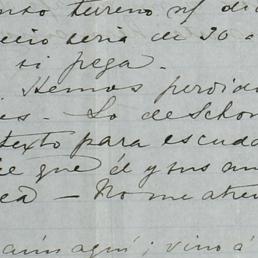 terreno
seria de 30
si pega.
Hemos perdido
Lo de Schom
texto para escuda
que él y sus am
No me atre
aun aquí; vino á